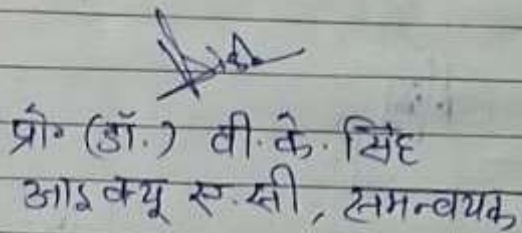 प्रो० (डॉ.) वी. के. सिंह
आइ क्यू ए. सी, समन्वयक